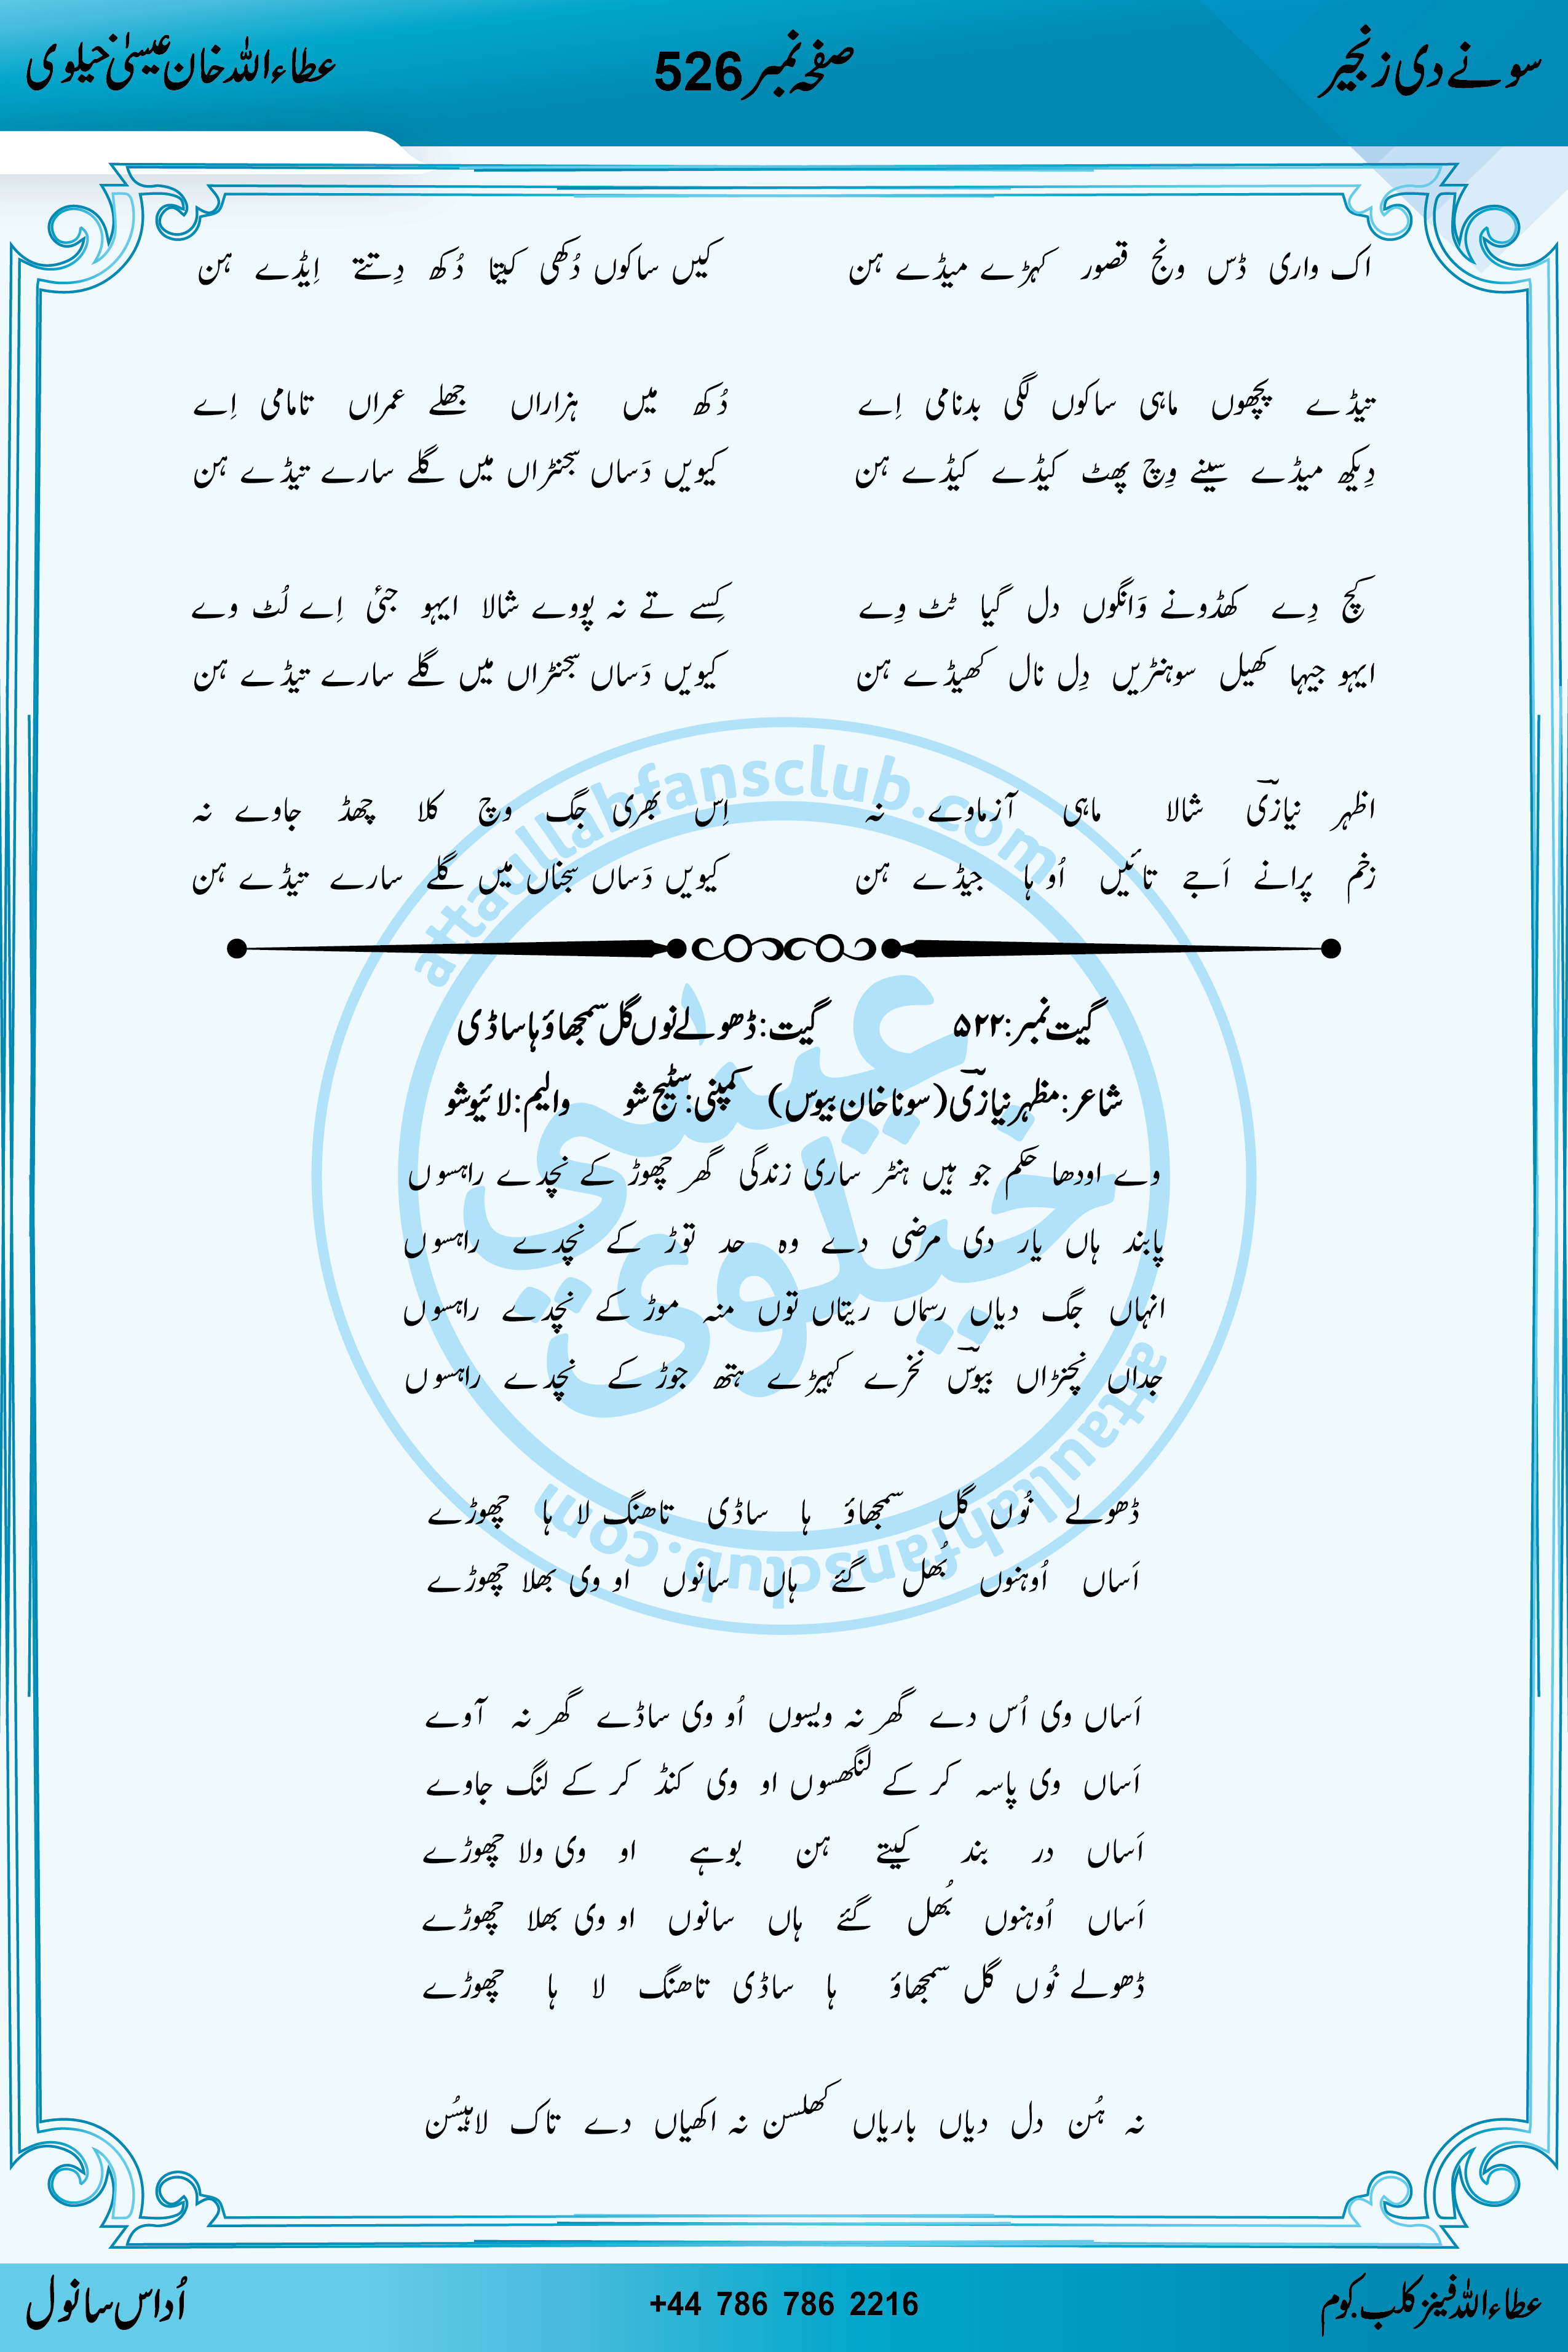 سونے دی زنجیر صفحہ نمبر 526 عطاءاللہ خان عیسیٰ خیلوی
اک واری ڈس ونج قصور کہڑے میڈے ہن کیں ساکوں دُکھی کیتا دُکھ دِتتے اِیڈے ہن
تیڈے پچھوں ماہی ساکوں لگی بدنامی اِے دُکھ میں ہزاراں جھلے عمراں تامامی اِے
دِیکھ میڈے سینے وِچ پھٹ کیڈے کیڈے ہن کیویں دَساں سجنڑاں میں گلے سارے تیڈے ہن
کچ دِے کھڈونے وَانگوں دل گیا ٹٹ وِے کِسے تے نہ پووے شالا ایہو جئی اِے لُٹ وے
ایہو جیہا کھیل سوہنڑیں دِل نال کھیڈے ہن کیویں دَساں سجنڑاں میں گلے سارے تیڈے ہن
اظہر نیازیؔ شالا ماہی آزماوے نہ اِس بھری جگ وچ کلا چھڈ جاوے نہ
زخم پرانے اَجے تائیں اُو ہا جیڈے ہن کیویں دَساں سجناں میں گلے سارے تیڈے ہن
گیت نمبر:۵۲۲ گیت: ڈھولے نوں گل سمجھاؤ ہا ساڈی
شاعر: مظہر نیازیؔ (سونا خان بیوس) کمپنی: سٹیج شو والیم: لائیو شو
وے اودھا حکم جو ہیں ہنٹر ساری زندگی گھر چھوڑ کے نچدے راہسوں
پابند ہاں یار دی مرضی دے وہ حد توڑ کے نچدے راہسوں
انہاں جگ دیاں رسماں ریتاں توں منہ موڑ کے نچدے راہسوں
جداں نچنڑاں بیوسؔ نخرے کہیڑے ہتھ جوڑ کے نچدے راہسوں
ڈھولے نُوں گل سمجھاؤ ہا ساڈی تاھنگ لا ہا چھوڑے
اَساں اُوہنوں بُھل گئے ہاں سانوں او وی بھلا چھوڑے
اَساں وی اُس دے گھر نہ ویسوں اُو وی ساڈے گھر نہ آوے
اَساں وی پاسہ کر کے لنگھسوں او وی کنڈ کر کے لنگ جاوے
اَساں در بند کیتے ہن بوہے او وی ولا چھوڑے
اَساں اُوہنوں بُھل گئے ہاں سانوں او وی بھلا چھوڑے
ڈھولے نُوں گل سمجھاؤ ہا ساڈی تاھنگ لا ہا چھوڑے
نہ ہُن دل دیاں باریاں کھلسن نہ اکھیاں دے تاک لاہیسُن
attaullahfansclub.com
عیسیٰ خیلوی
attaullahfansclub.com
عطاءاللہ فینز کلب.کوم +44 786 786 2216 اُداس سانول